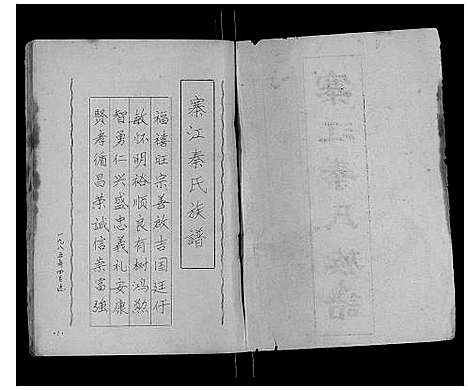 寨江秦氏族譜
福禧旺宗善啟吉国廷仔
敏怀明裕顺良有树鸿勲
智勇仁兴盛忠义礼安康
賢孝循昌荣诚信崇富強
一九八五年四月
寨江秦氏族譜